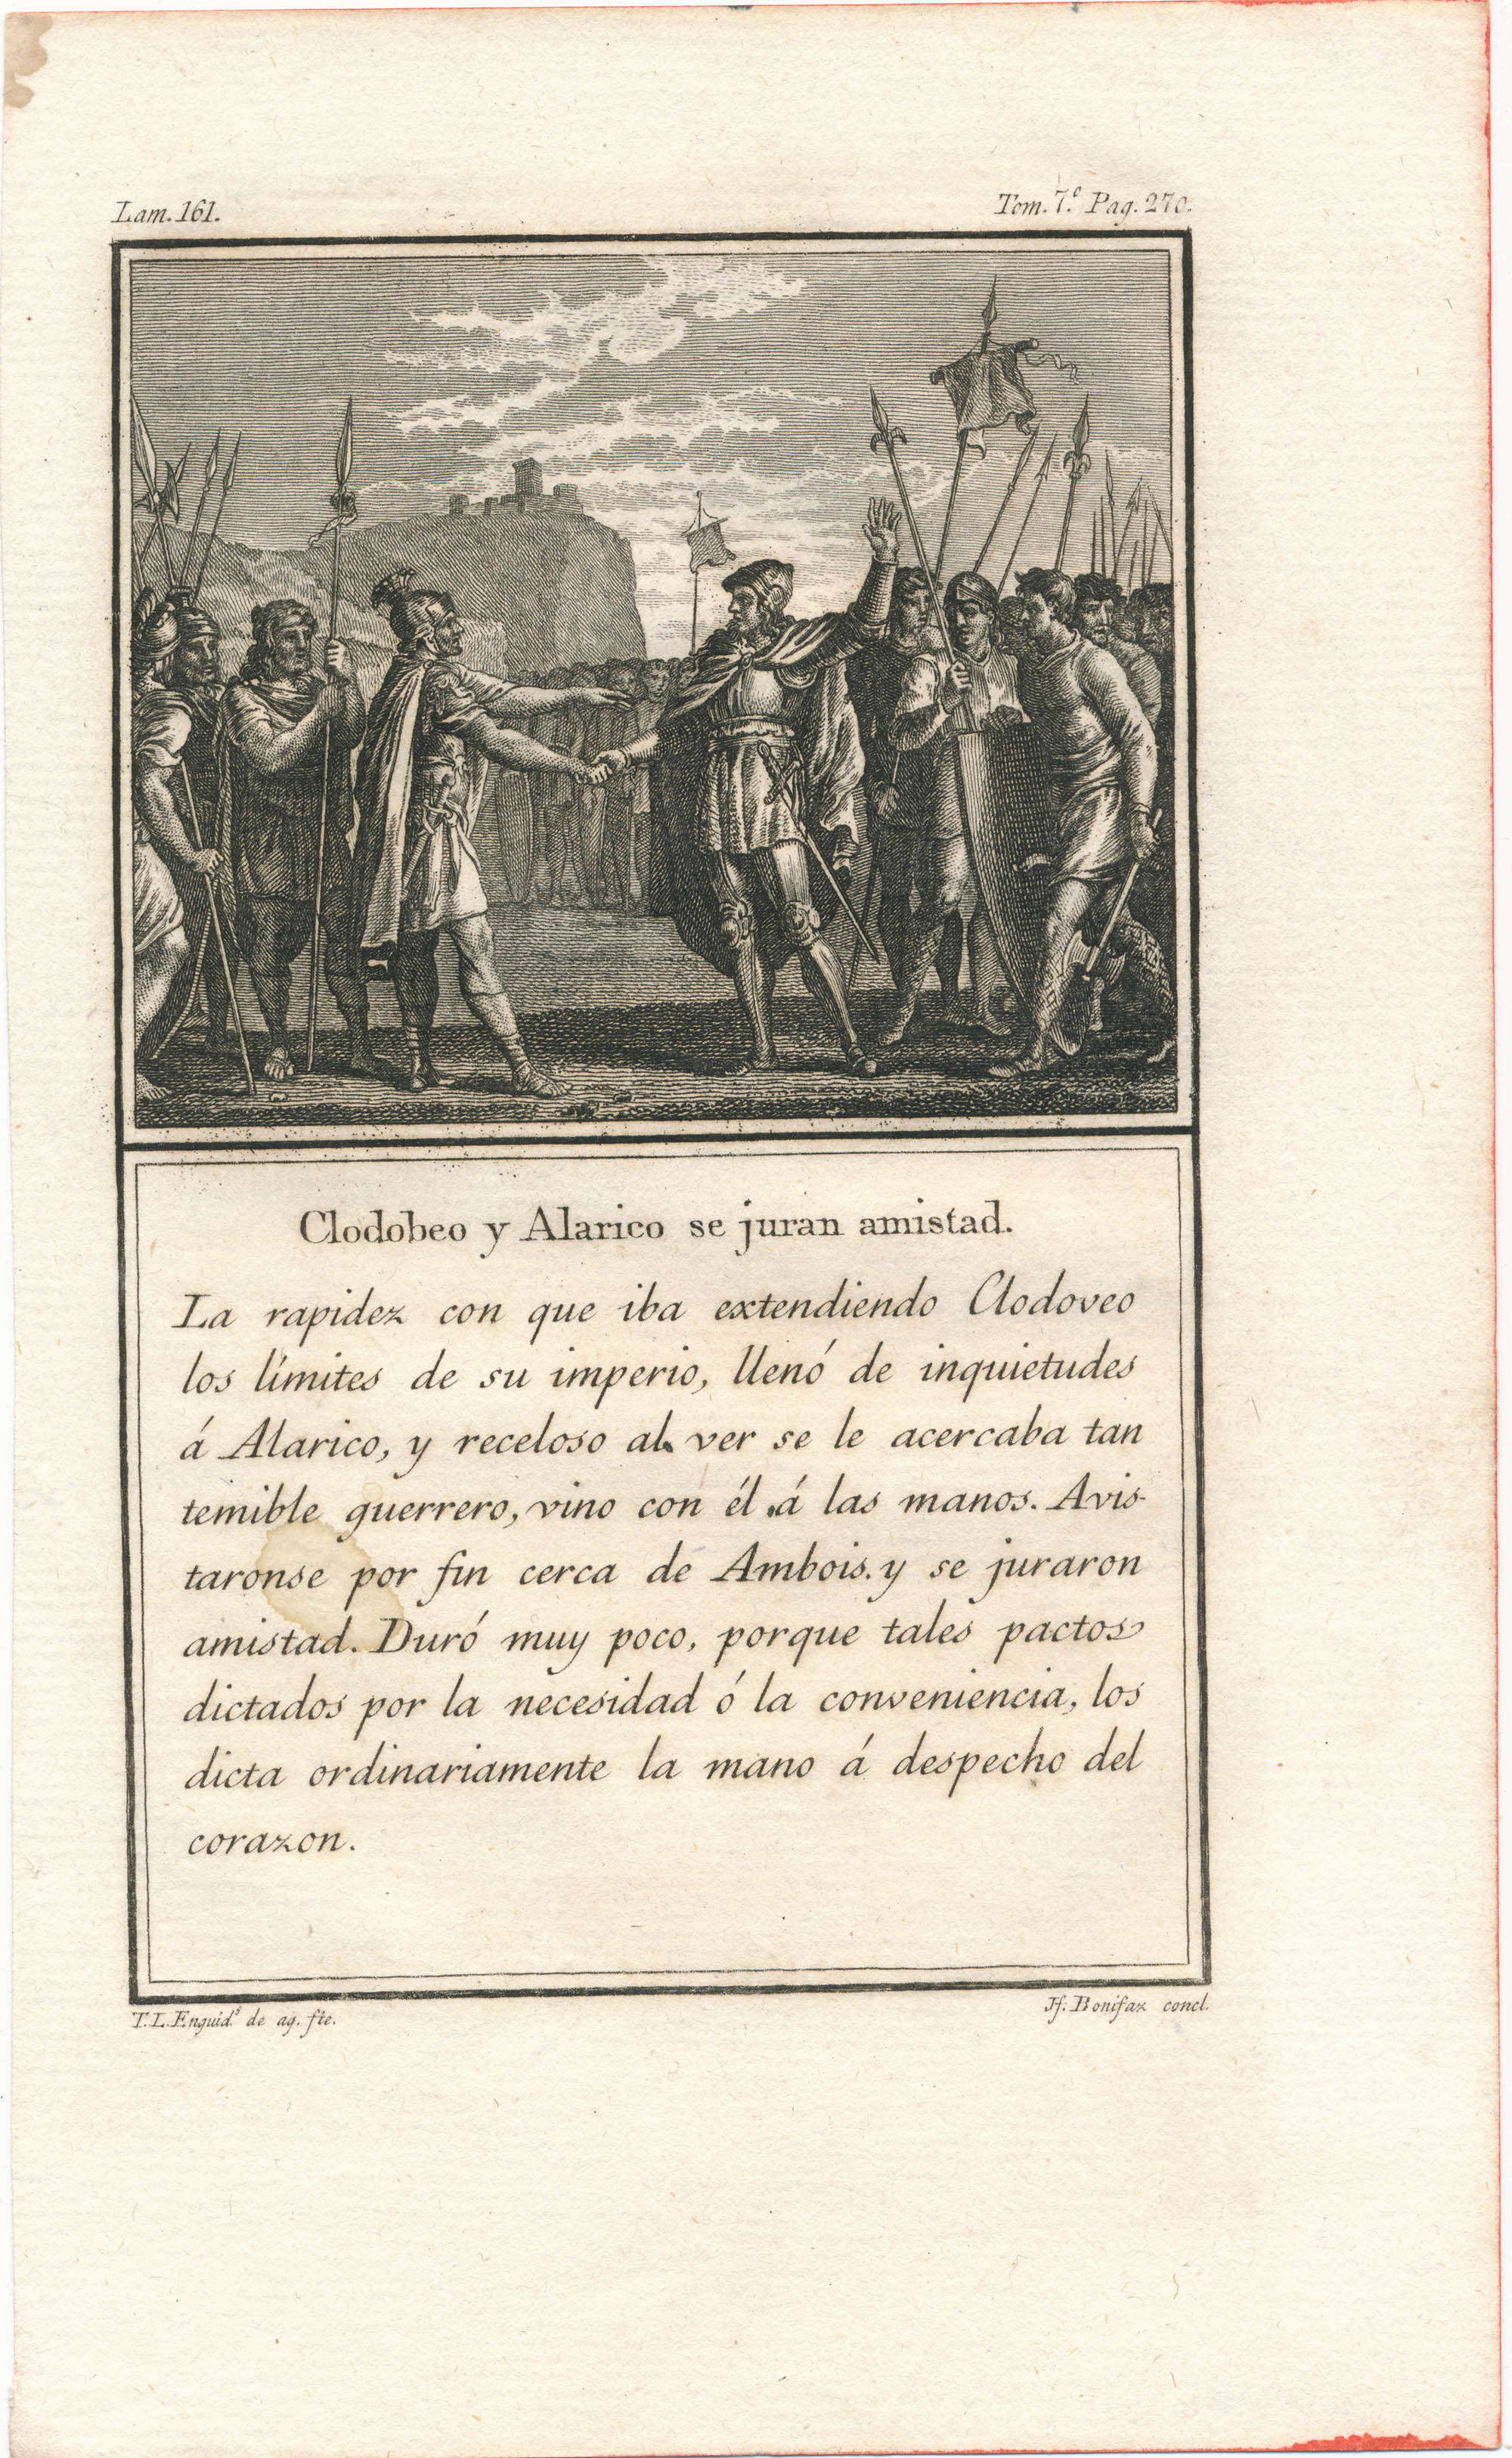 Lam. 161.
Tom. 7.º Pag. 270.
Clodobeo y Alarico se juran amistad.
La rapidez con que iba extendiendo Clodoveo
los límites de su imperio, llenó de inquietudes
á Alarico, y receloso al ver se le acercaba tan
temible guerrero, vino con él á las manos. Avis-
taronse por fin cerca de Ambois. y se juraron
amistad. Duró muy poco, porque tales pactos
dictados por la necesidad ó la conveniencia, los
dicta ordinariamente la mano á despecho del
corazon.
T. L. Enguid.s de ag. fte.
Jf. Bonifaz concl.